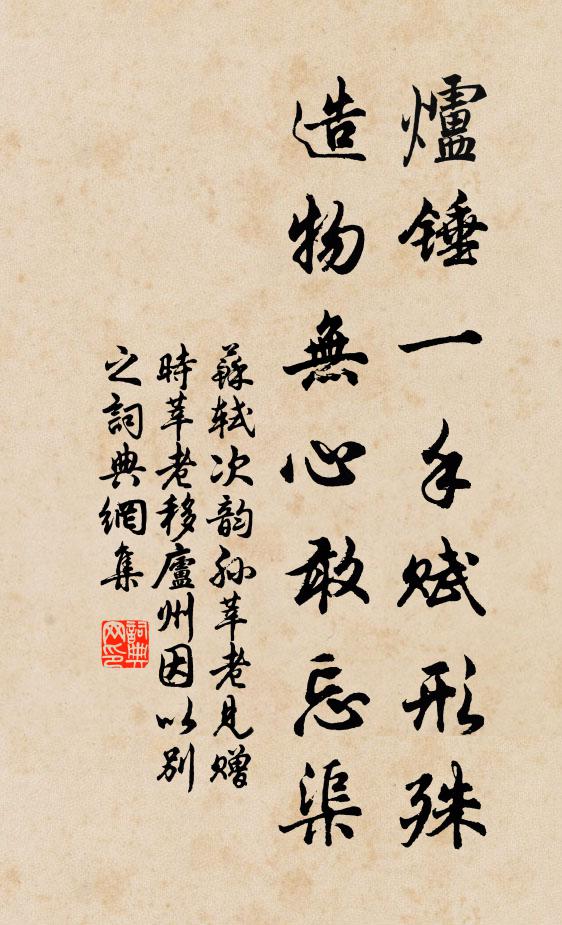 爐錘一手賦形殊
造物無心敢忘渠
蘇軾次韵孙莘老見赠
時莘老移廬州因以别
之詞典網集
詞典网印